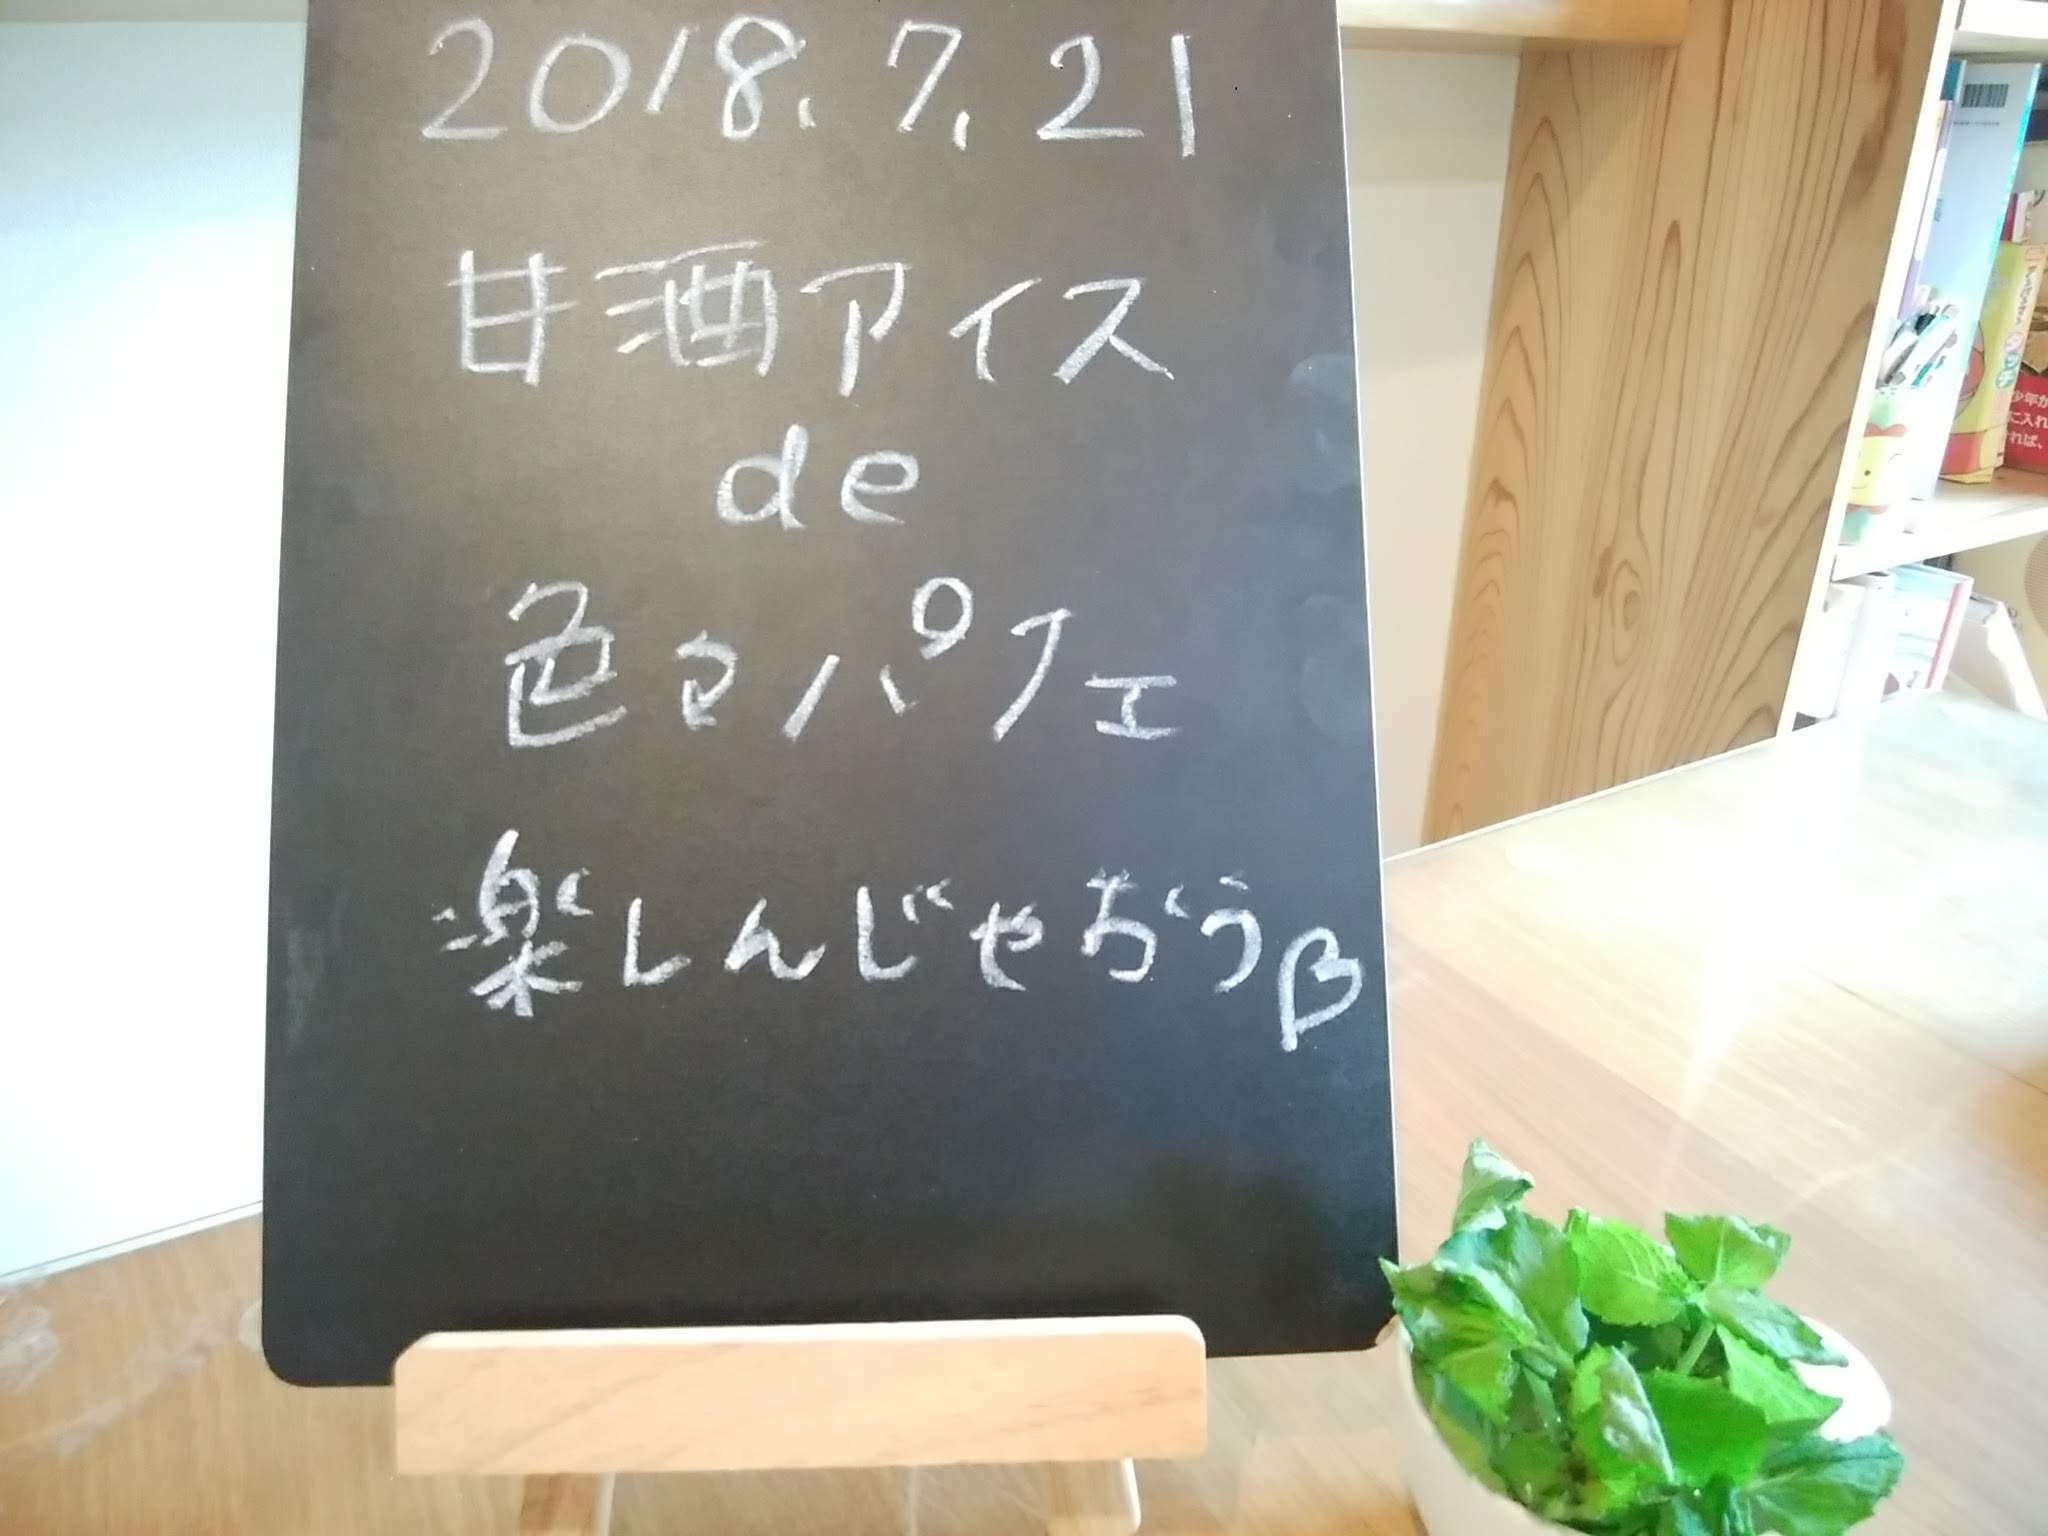 2018.7.21
甘酒アイス
de
色々パフェ
楽しんじゃおう♡
少年が
に入れ
ければ、